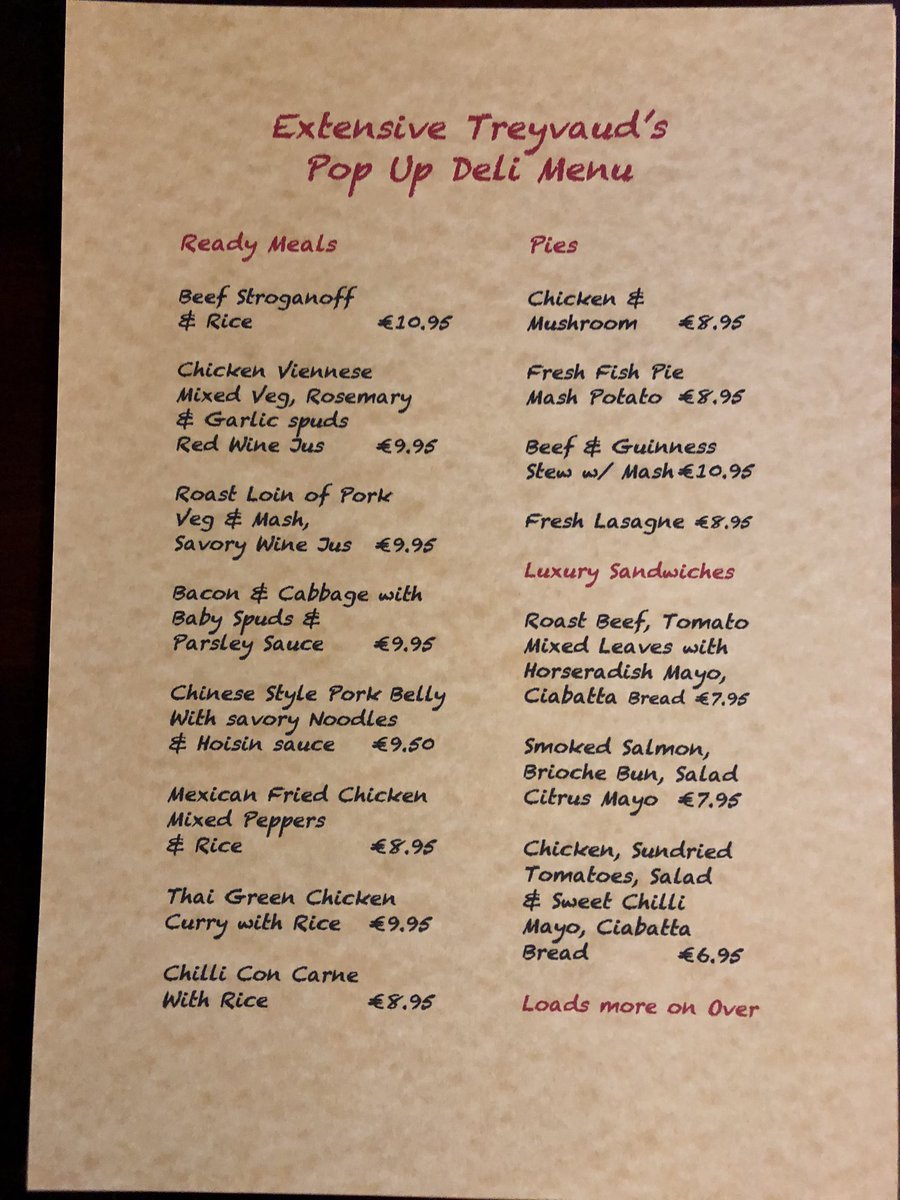 Extensive Treyvaud's
Pop Up Deli Menu
Ready Meals
Beef Stroganoff
& Rice €10.95
Chicken Viennese
Mixed Veg, Rosemary
& Garlic spuds
Red Wine Jus €9.95
Roast Loin of Pork
Veg & Mash,
Savory Wine Jus €9.95
Bacon & Cabbage with
Baby Spuds &
Parsley Sauce €9.95
Chinese Style Pork Belly
With savory Noodles
& Hoisin sauce €9.50
Mexican Fried Chicken
Mixed Peppers
& Rice €8.95
Thai Green Chicken
Curry with Rice €9.95
Chilli Con Carne
With Rice €8.95
Pies
Chicken &
Mushroom €8.95
Fresh Fish Pie
Mash Potato €8.95
Beef & Guinness
Stew w/ Mash €10.95
Fresh Lasagne €8.95
Luxury Sandwiches
Roast Beef, Tomato
Mixed Leaves with
Horseradish Mayo,
Ciabatta Bread €7.95
Smoked Salmon,
Brioche Bun, Salad
Citrus Mayo €7.95
Chicken, Sundried
Tomatoes, Salad
& Sweet Chilli
Mayo, Ciabatta
Bread €6.95
Loads more on Over